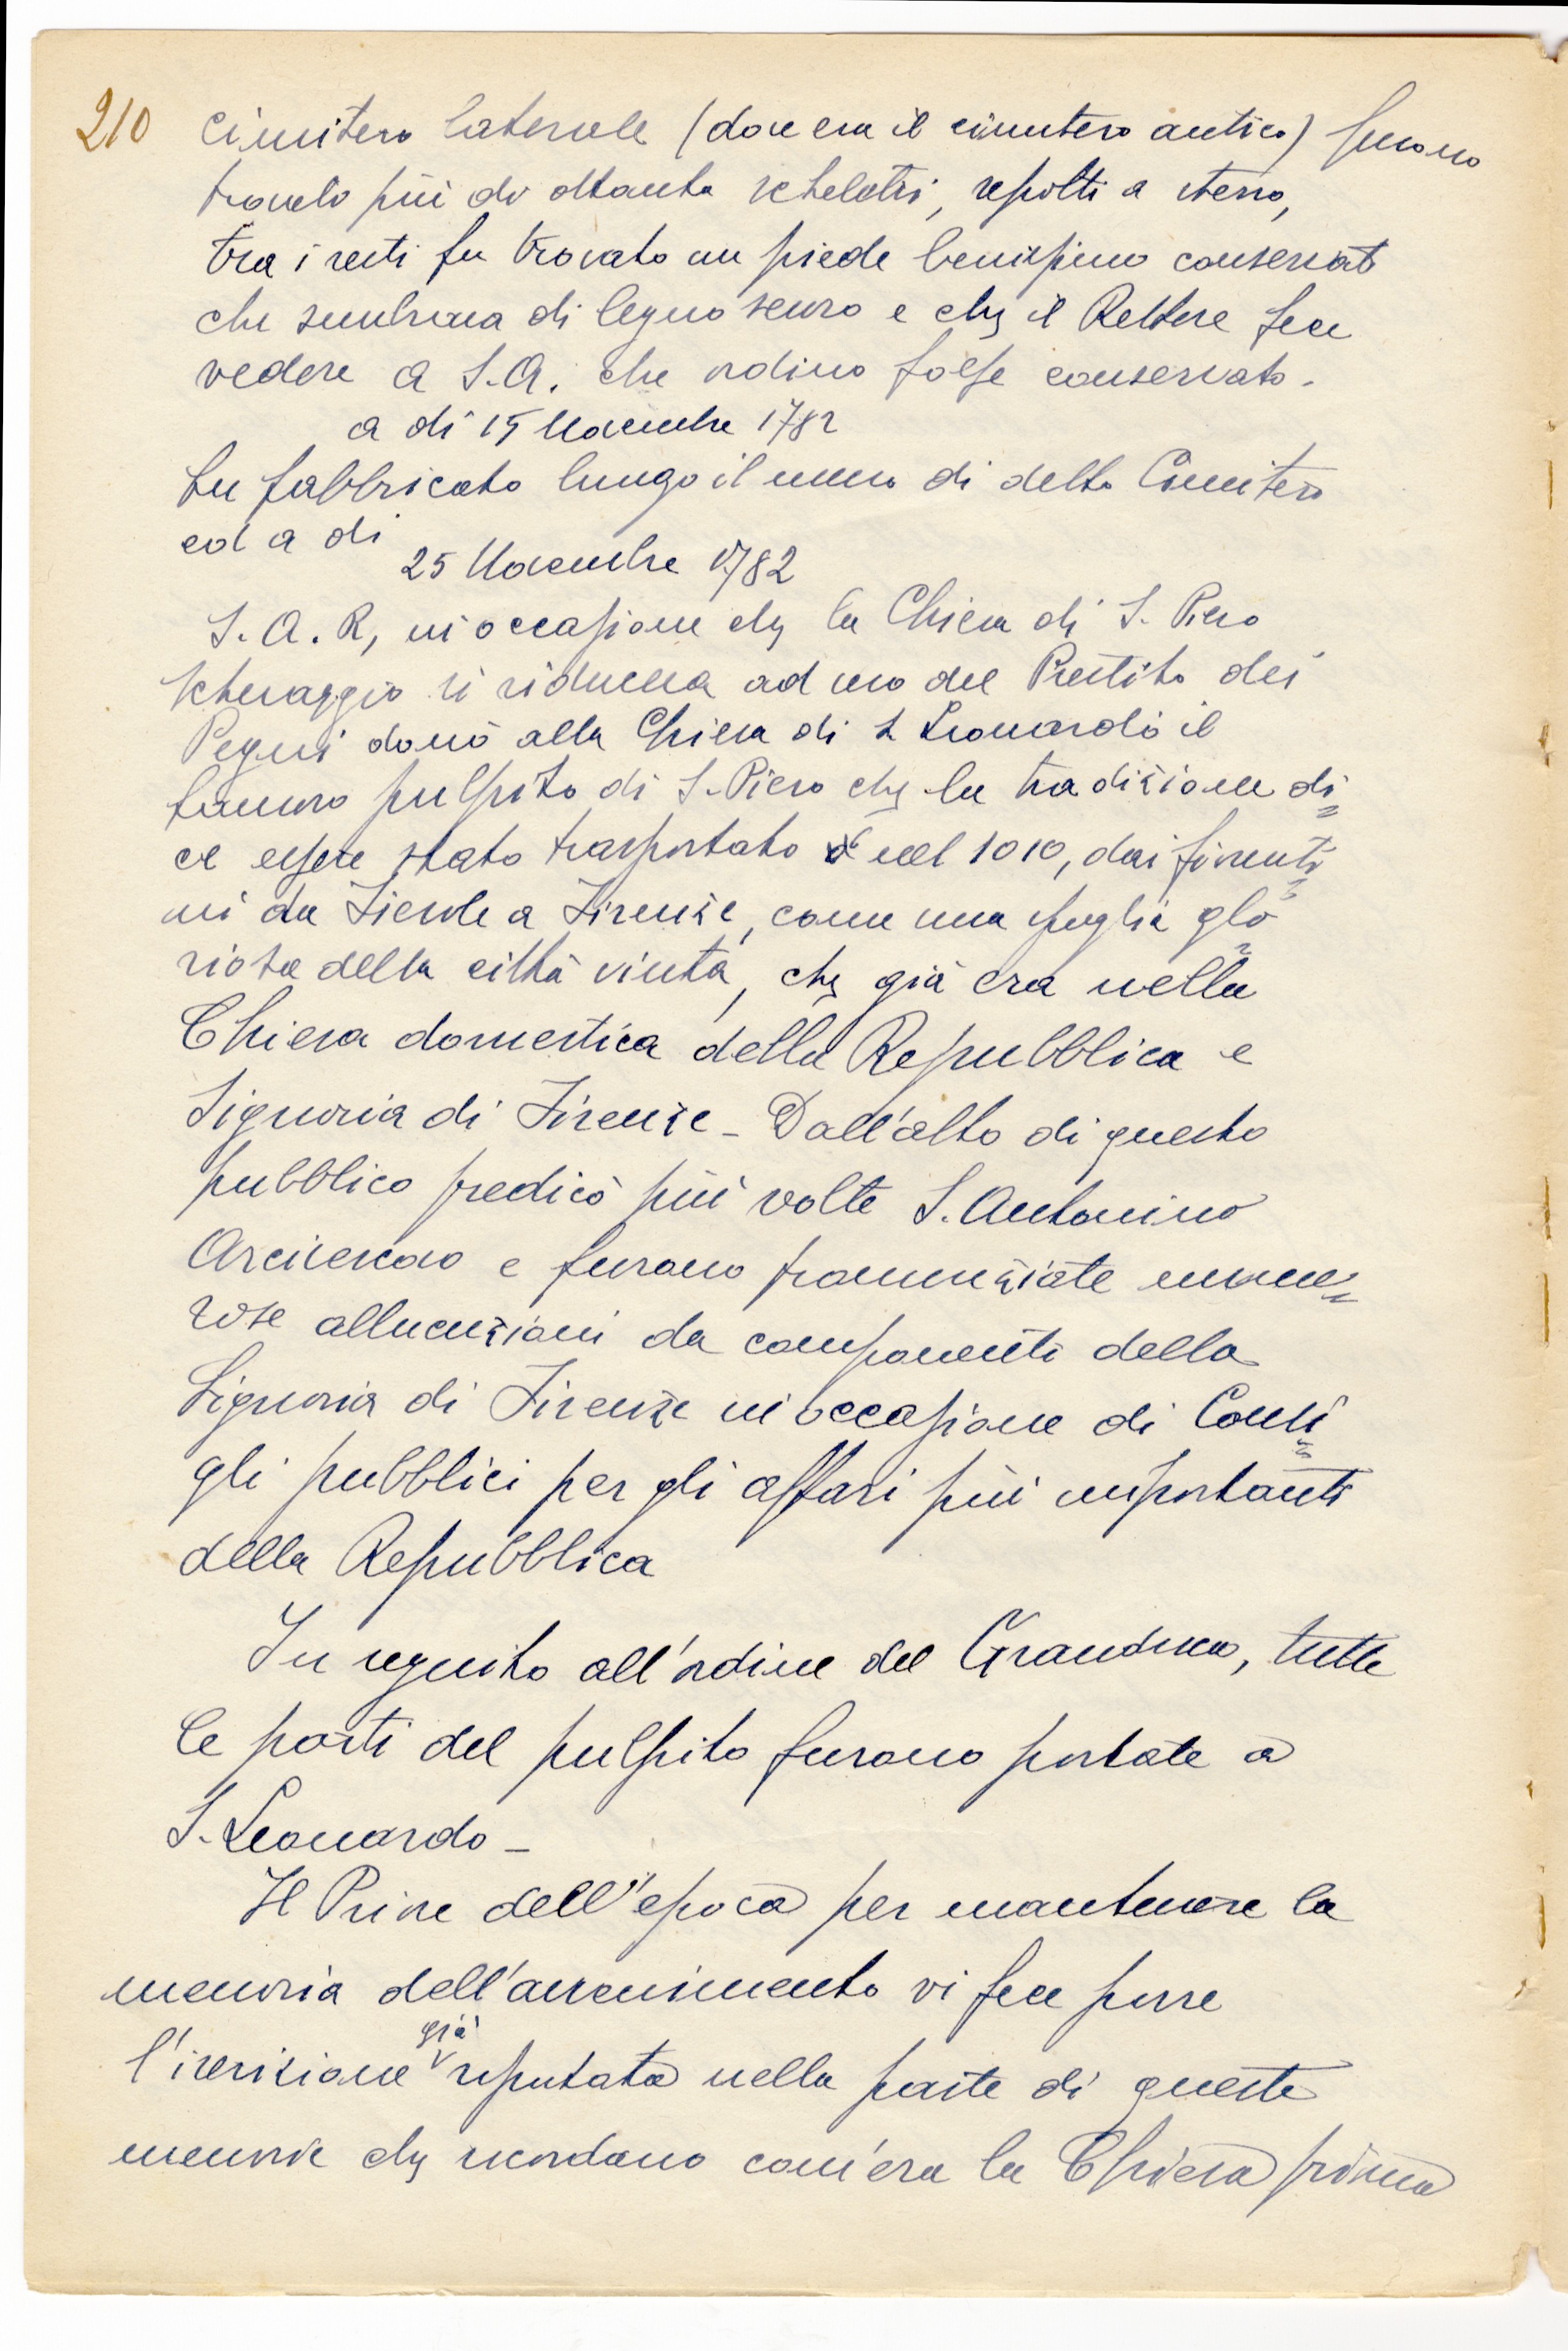 210
cimitero laterale (dove era il cimitero antico) furono
trovato più di ottanta scheletri, sepolti a sterro,
tra i resti fu trovato un piede benissimo conservato
che sembrava di legno scuro e che il Rettore fece
vedere a S.A. che ordinò fosse conservato.
a di 15 Novembre 1782
Fu fabbricato lungo il muro di detto Cimitero
ed a di
25 Novembre 1782
S.A.R, in occasione che la Chiesa di S. Piero
Scheraggio si riduceva ad uso del Prestito dei
Pegni donò alla Chiesa di S Leonardo il
famoso pulpito di S. Piero che la tradizione di=
ce essere stato trasportato nel 1010, dai fiorenti=
ni da Fiesole a Firenze, come una spoglia glo=
riosa della città vinta, che già era nella
Chiesa domestica della Repubblica e
Signoria di Firenze - Dall'alto di questo
pubblico predicò più volte S. Antonino
Arcivescovo e furono pronunziate nume=
rose allucuzioni da componenti della
Signoria di Firenze in occasione di Consi=
gli pubblici per gli affari più importanti
della Repubblica
In seguito all'ordine del Granduca, tutte
le parti del pulpito furono portate a
S. Leonardo -
Il Priore dell'epoca per mantenere la
memoria dell'avvenimento vi fece porre
l'iscrizione già riportata nella parte di queste
memorie che ricordano com'era la Chiesa prima